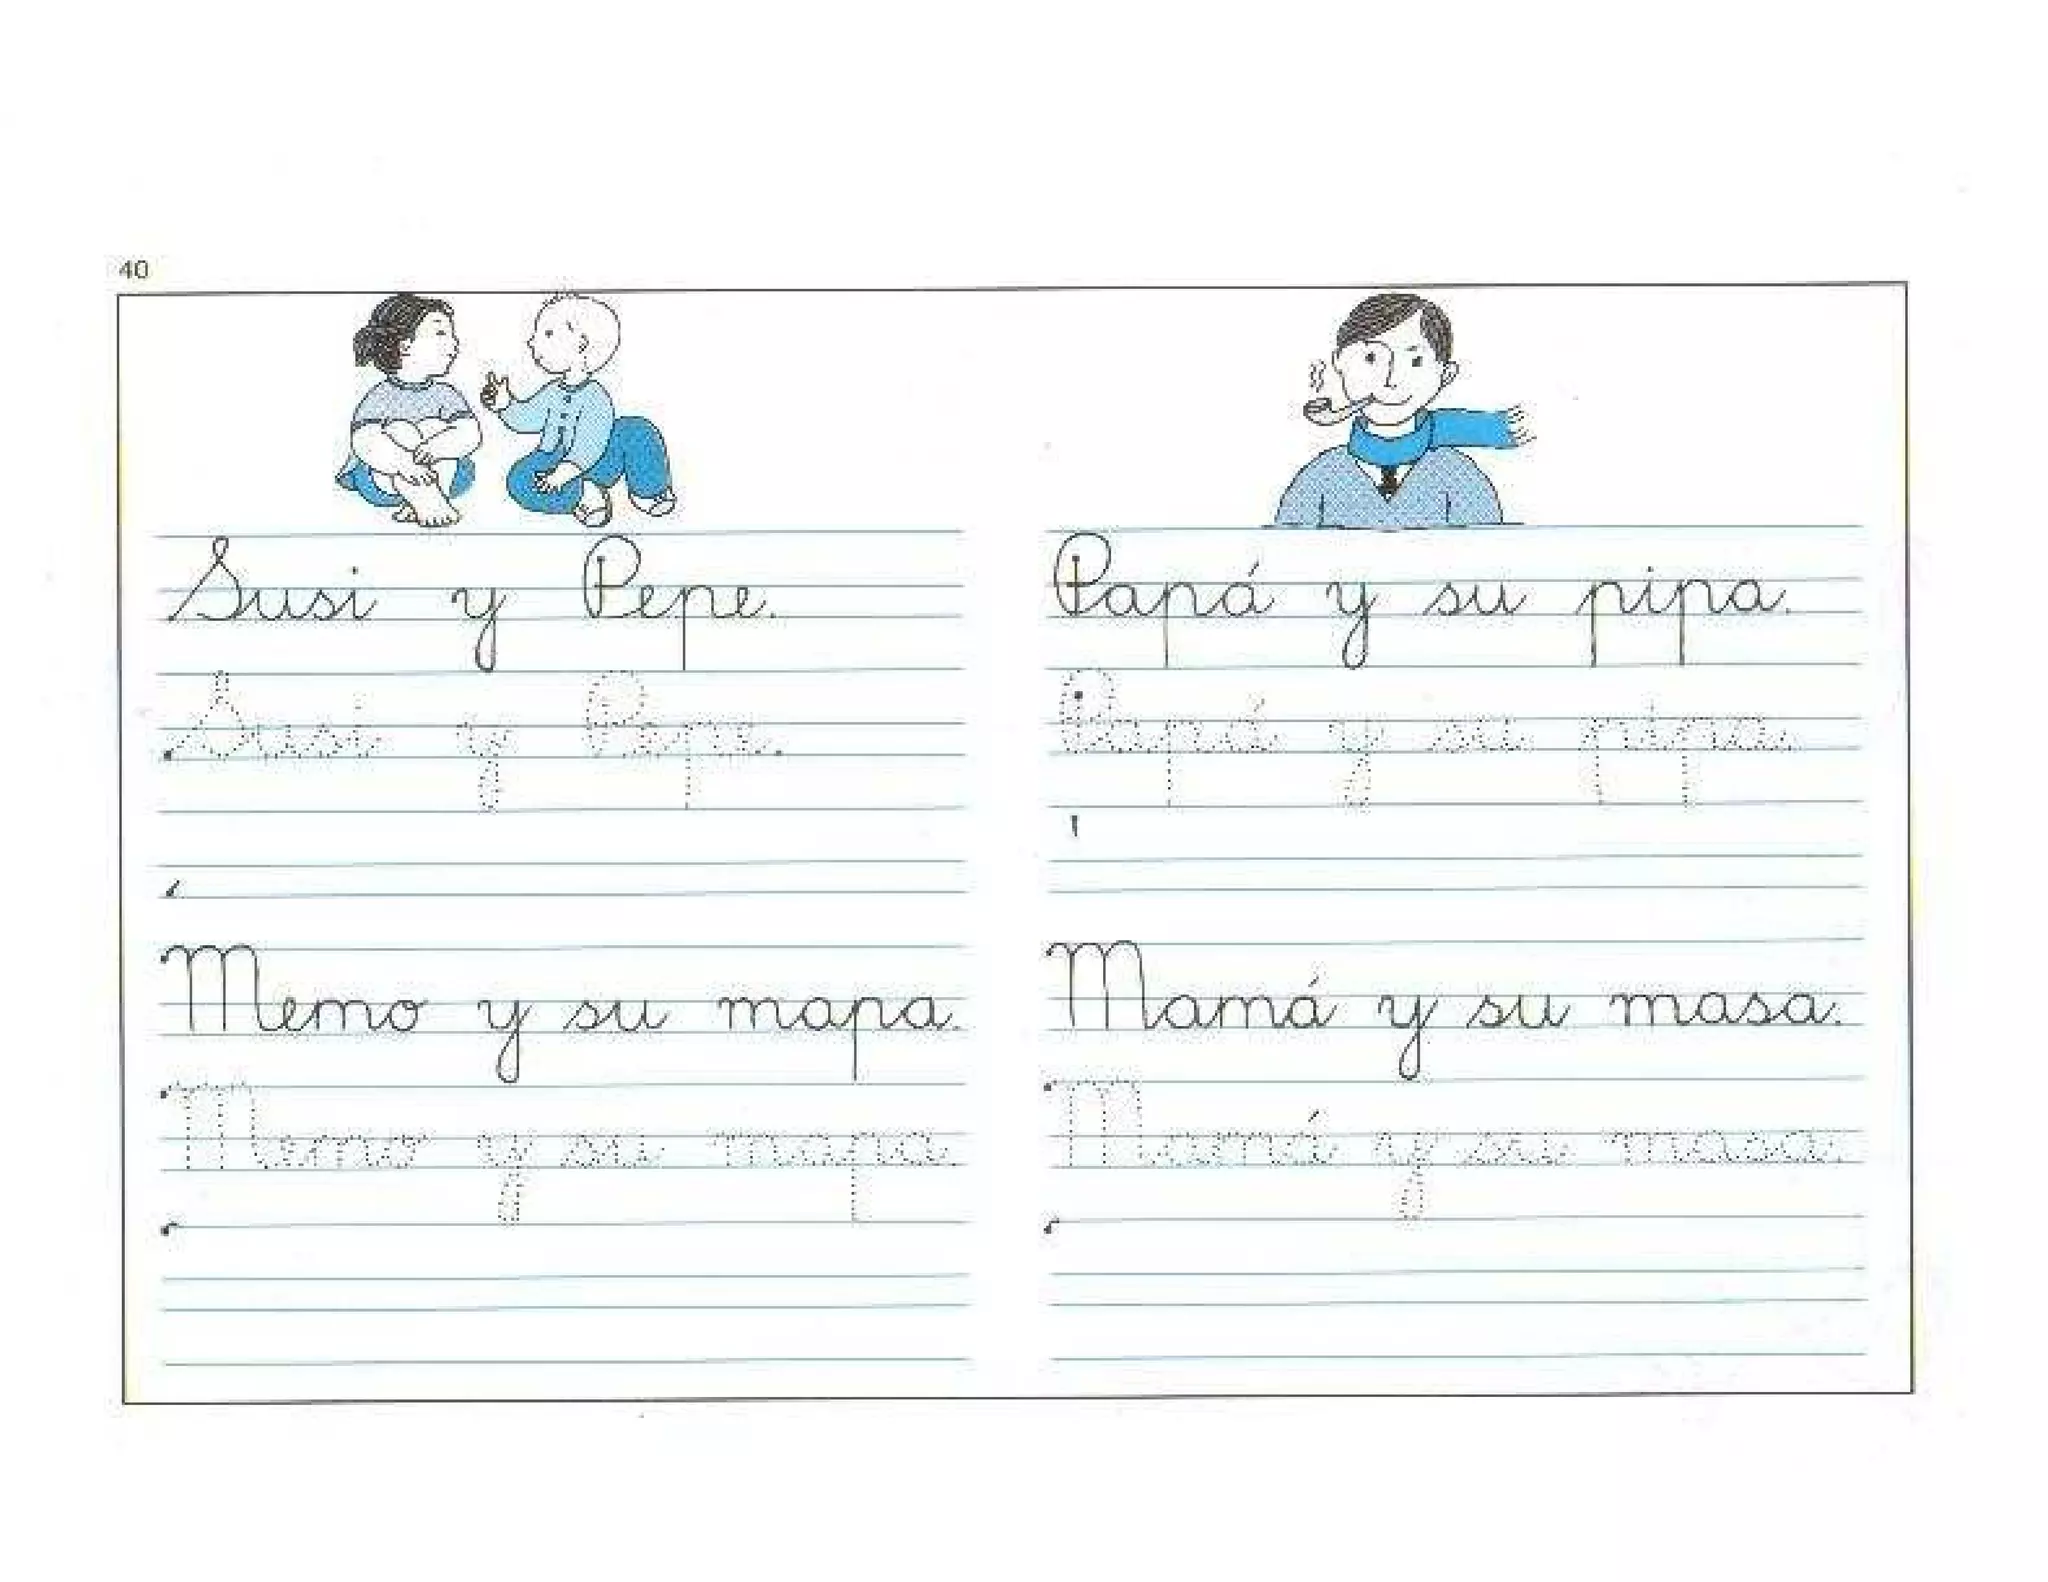 40
Susi y Pepe.
Susi y Pepe.
Memo y su mapa.
Memo y su mapa.
Papá y su pipa.
Papá y su pipa.
Mamá y su masa.
Mamá y su masa.